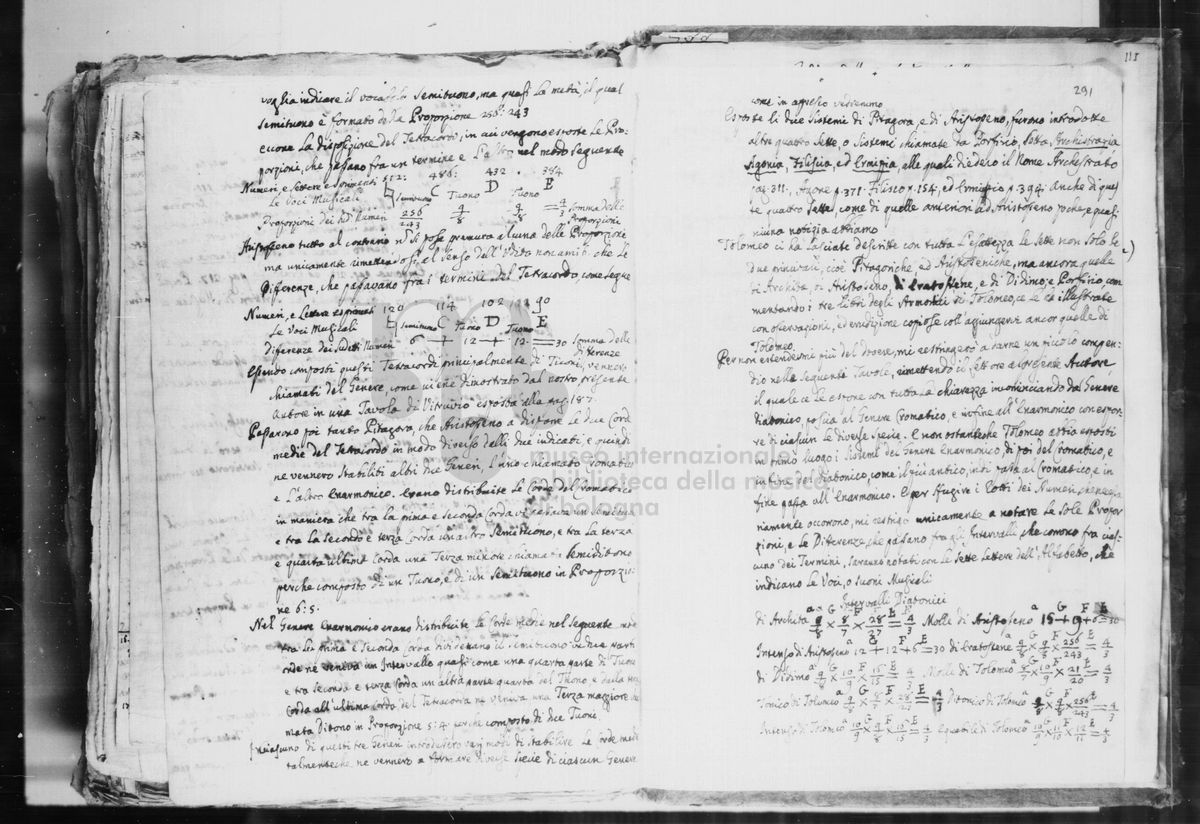 voglia indicare il vocabolo Semituono, ma quasi la metà, il qual
Semituono è formato della Proporzione 256: 243
la disposizione del Tetracordo, in cui vengono esposte le Pro-
porzioni, che passano fra un termine e l'altro nel modo seguente
Numeri, e Lettere esprimenti 512: 486: 432 . 384
Le Voci Musicali ♮ Semituono C Tuono D Tuono E
Proporzioni dei sud.ti Numeri 256/243 9/8 9/8 = 4/3 Somma delle
Proporzioni
Aristosseno tutto al contrario non si pose premura alcuna delle Proporzioni
ma unicamente rimettendosi al senso dell'Udito nominò che le
Differenze, che passavano fra i termini del Tetracordo, come segue
Numeri, e Lettere esprimenti 120 114 102 90
Le Voci Musicali ♮ Semituono C Tuono D Tuono E
Differenze dei sudetti Numeri 6 + 12 + 12 = 30 Somma delle
differenze
Essendo composti questi Tetracordi principalmente di Tuoni, vennero
chiamati del Genere come viene dimostrato dal nostro presente
Autore in una Tavola di Vitruvio esposta alla pag. 187.
Passarono poi tanto Pitagora, che Aristosseno a disporre le due Corde
medie del Tetracordo in modo diverso dalli due indicati, e quindi
ne vennero stabiliti altri due Generi, l'uno chiamato Cromatico
e l'altro Enarmonico. Erano distribuite le Corde del Cromatico
in maniera che tra la prima e seconda Corda veniva un Semituono
e tra la seconda e terza Corda un altro Semituono, e tra la terza
e quarta ultima Corda una Terza minore chiamata Semiditono
perche composto di un Tuono, e di un Semituono in Proporzio-
ne 6: 5.
Nel Genere Enarmonico erano distribuite le Corde medie nel seguente modo
tra la prima e seconda Corda dividevano il Semituono in due parti
onde ne veniva un Intervallo quasi come una quarta parte di Tuono
e tra seconda e terza Corda un altra parte quarta del Tuono e dalla terza
Corda all'ultima Corda del Tetracordo ne veniva una Terza maggiore chia-
mata Ditono in Proporzione 5:4 perche composto di due Tuoni.
In ciascuno di questi tre Generi introdussero varj modi di stabilire le Corde medie
talmenteche ne vennero a formare diverse specie di ciascun Genere
111
291
come in appresso vedremo
Esposte li due Sistemi di Pitagora e di Aristosseno, furono introdotte
altre quattro Sette, o Sistemi chiamate da Porfirio, Setta Archistrazia
Agonia, Filiscia, ed Ermippia, alle quali diedero il Nome Archestrato
pag. 311., Agone p. 371. Filisco p. 154, ed Ermippo p. 394. Anche di ques-
te quattro Sette, come di quelle anteriori ad Aristosseno poche e quasi
niuna notizia abbiamo
Tolomeo ci ha lasciate descritte con tutta l'esattezza le Sette non solo le
due primarie, cioè Pitagoriche, ed Aristosseniche, ma ancora quelle
di Archita, di Aristosseno, di Eratostene, e di Didimo; e Porfirio, com
mentando i tre libri degli Armonici di Tolomeo, ce le ha illustrate
con osservazioni, ed erudizione copiose coll'aggiungervi ancor quelle di
Tolomeo.
Per non estendermi più del dovere, mi restringerò a darne un piccolo compen-
dio nelle seguenti Tavole, rimettendo il Lettore al presente Autore
il quale ce le espone con tutta la chiarezza incominciando dal Genere
Diatonico, passa al Genere Cromatico, e infine all'Enarmonico con espor-
re di ciascun le diverse specie. E non ostanteche Tolomeo abbia esposti
in primo luogo i Sistemi del Genere Enarmonico, di poi del Cromatico, e
in fine del Diatonico, come il più antico, indi passa al Cromatico, e in
fine passa all'Enarmonico. E per sfugire i Rotti dei Numeri, che neces
sariamente occorrono, mi restringo unicamente a notare le sole Propor
zioni, e le Differenze, che passano fra gli Intervalli che corrono fra cias-
cuno dei Termini, saranno notati con le sette Lettere dell'Alfabeto, che
indicano le Voci, o Suoni Musicali
Intervalli Diatonici
di Archita a 9/8 G × 8/7 F × 28/27 E = 4/3 Molle di Aristosseno a 15 G + 9 F + 6 E = 30
Intenso di Aristosseno 12 + 12 + 6 = 30 di Eratostene a 9/8 G × 9/8 F × 256/243 E = 4/3
di Didimo a 9/8 G × 10/9 F × 16/15 E = 4/3 Molle di Tolomeo a 8/7 G × 10/9 F × 21/20 E = 4/3
Tonico di Tolomeo a 9/8 G × 8/7 F × 28/27 E = 4/3 Ditonico di Tolomeo a 9/8 G × 9/8 F × 256/243 E = 4/3
Intenso di Tolomeo a 10/9 G × 9/8 F × 16/15 E = 4/3 Equabile di Tolomeo a 10/9 G × 11/10 F × 12/11 E = 4/3
museo internazionale
e biblioteca della musica
di bologna